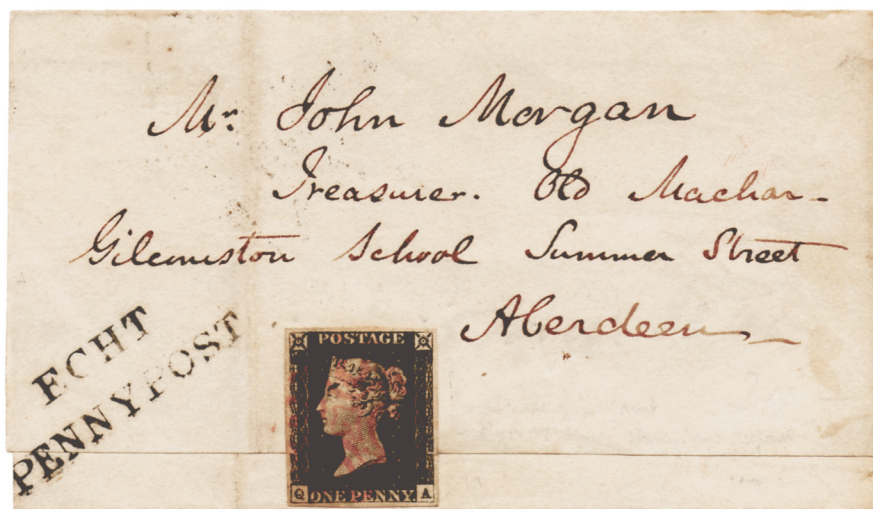 Mr. John Morgan
Treasurer. Old Machar-
Gilcomston School Summer Street
Aberdeen
ECHT
PENNY POST
POSTAGE
Q ONE PENNY. A